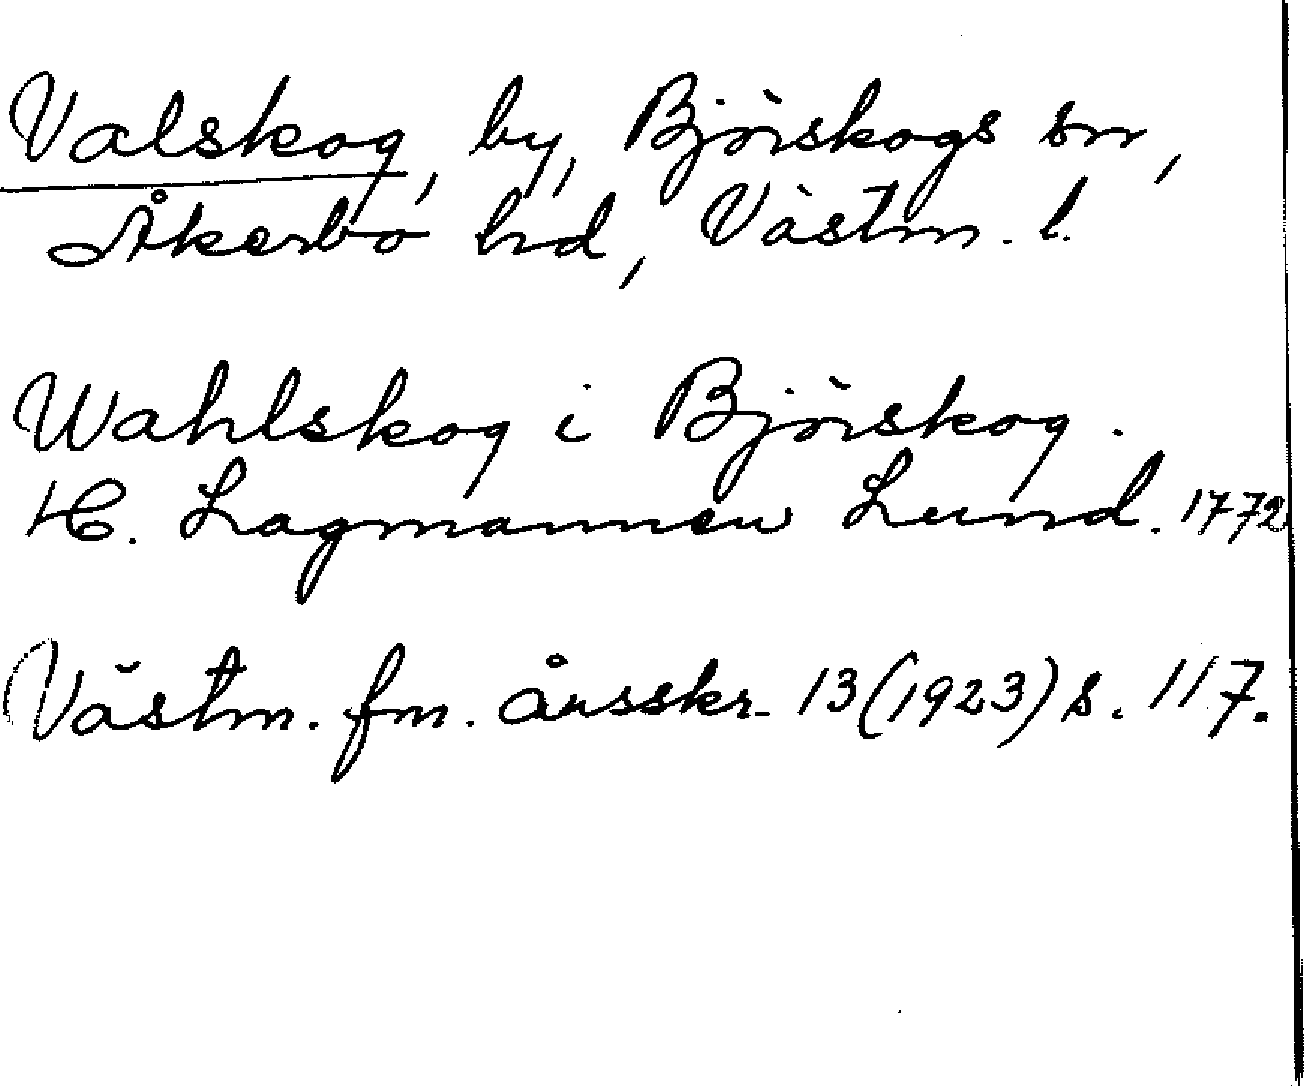 Valskog, by, Björskogs sn,
Åkerbo hd, Västm. l.
Wahlskog i Björskog.
H. Lagmannen Lund. 1772
Västm. fm. årsskr. 13 (1923) s. 117.